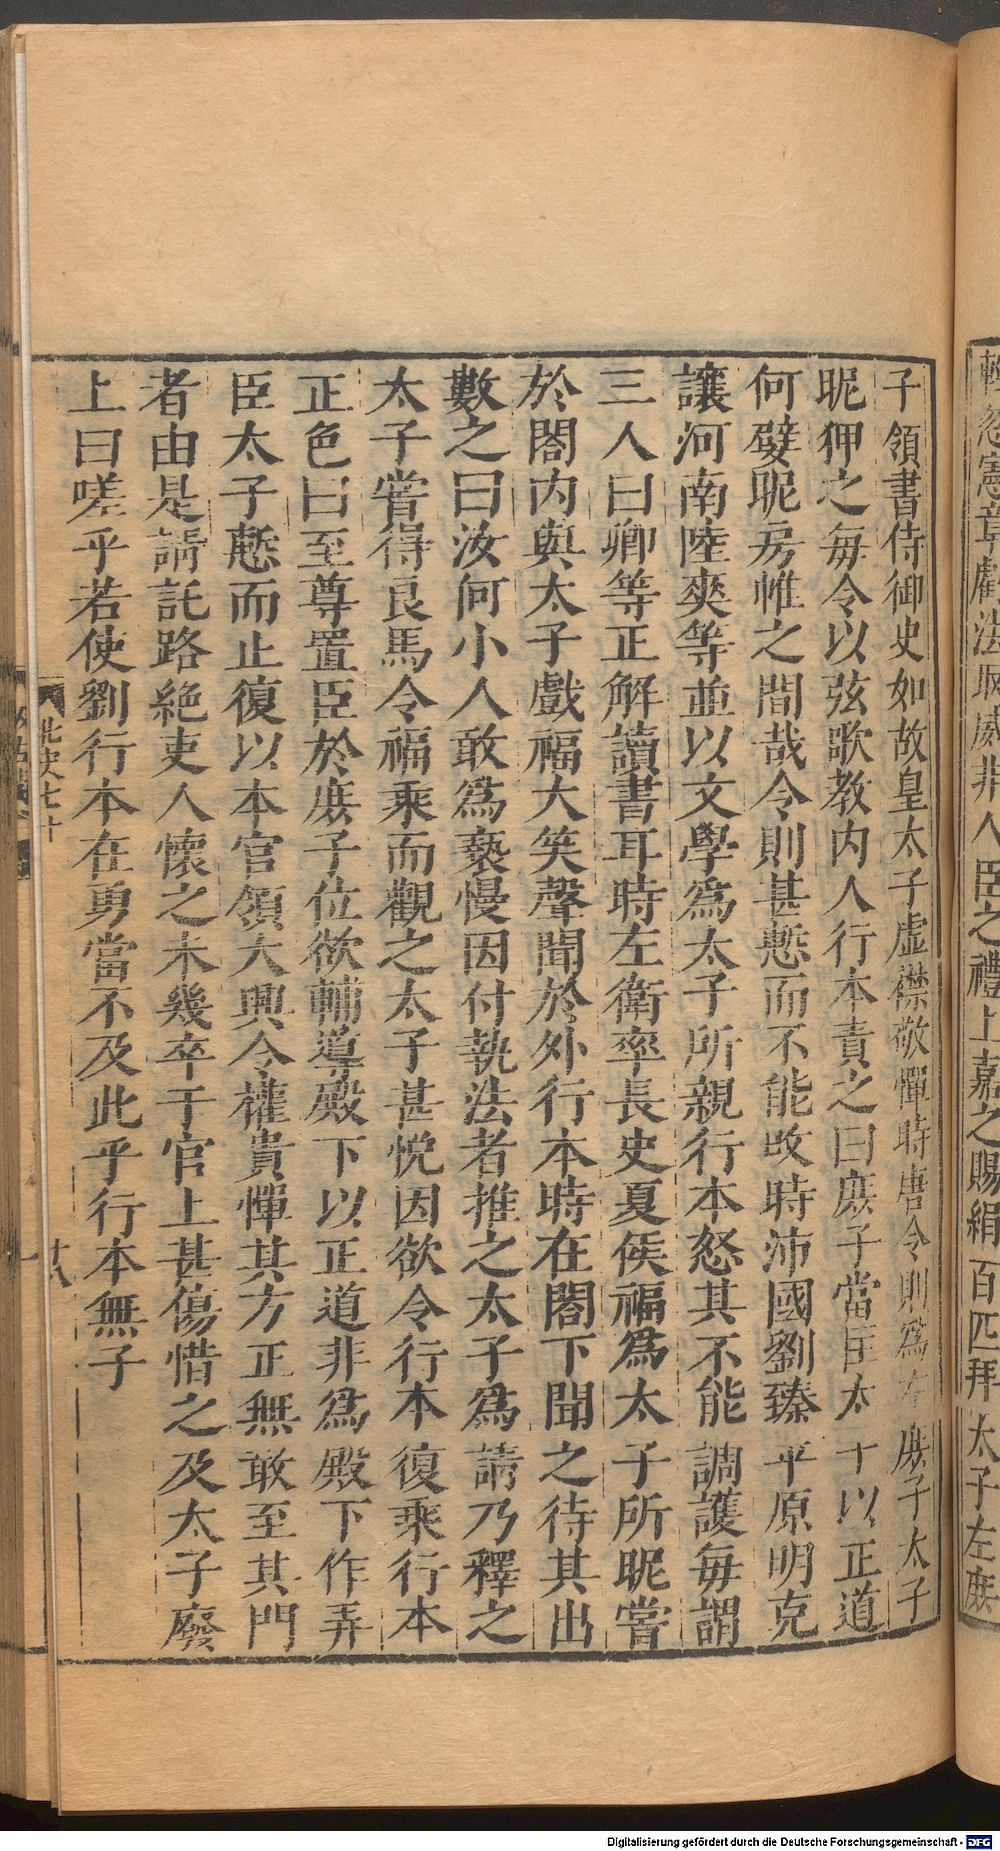 輕忽憲章虧法取威非人臣之禮上嘉之賜絹百匹拜太子左庶
子領書侍御史如故皇太子虛襟敬憚時唐令則爲左庶子太子
昵狎之每令以弦歌教内人行本責之曰庶子當匡太子以正道
何嬖昵房帷之間哉令則甚慙而不能改時沛國劉臻平原明克
讓河南陸爽等並以文學爲太子所親行本怒其不能調護每謂
三人曰卿等正解讀書耳時左衛率長史夏侯福爲太子所昵嘗
於閤内與太子戲福大笑聲聞於外行本時在閤下聞之待其出
數之曰汝何小人敢爲褻慢因付執法者推之太子爲請乃釋之
太子嘗得良馬令福乘而觀之太子甚悅因欲令行本復乘行本
正色曰至尊置臣於庶子位欲輔導殿下以正道非爲殿下作弄
臣太子慙而止復以本官領大興令權貴憚其方正無敢至其門
者由是請託路絶吏人懷之未幾卒于官上甚傷惜之及太子廢
上曰嗟乎若使劉行本在勇當不及此乎行本無子
北史七十
十八
Digitalisierung gefördert durch die Deutsche Forschungsgemeinschaft - DFG